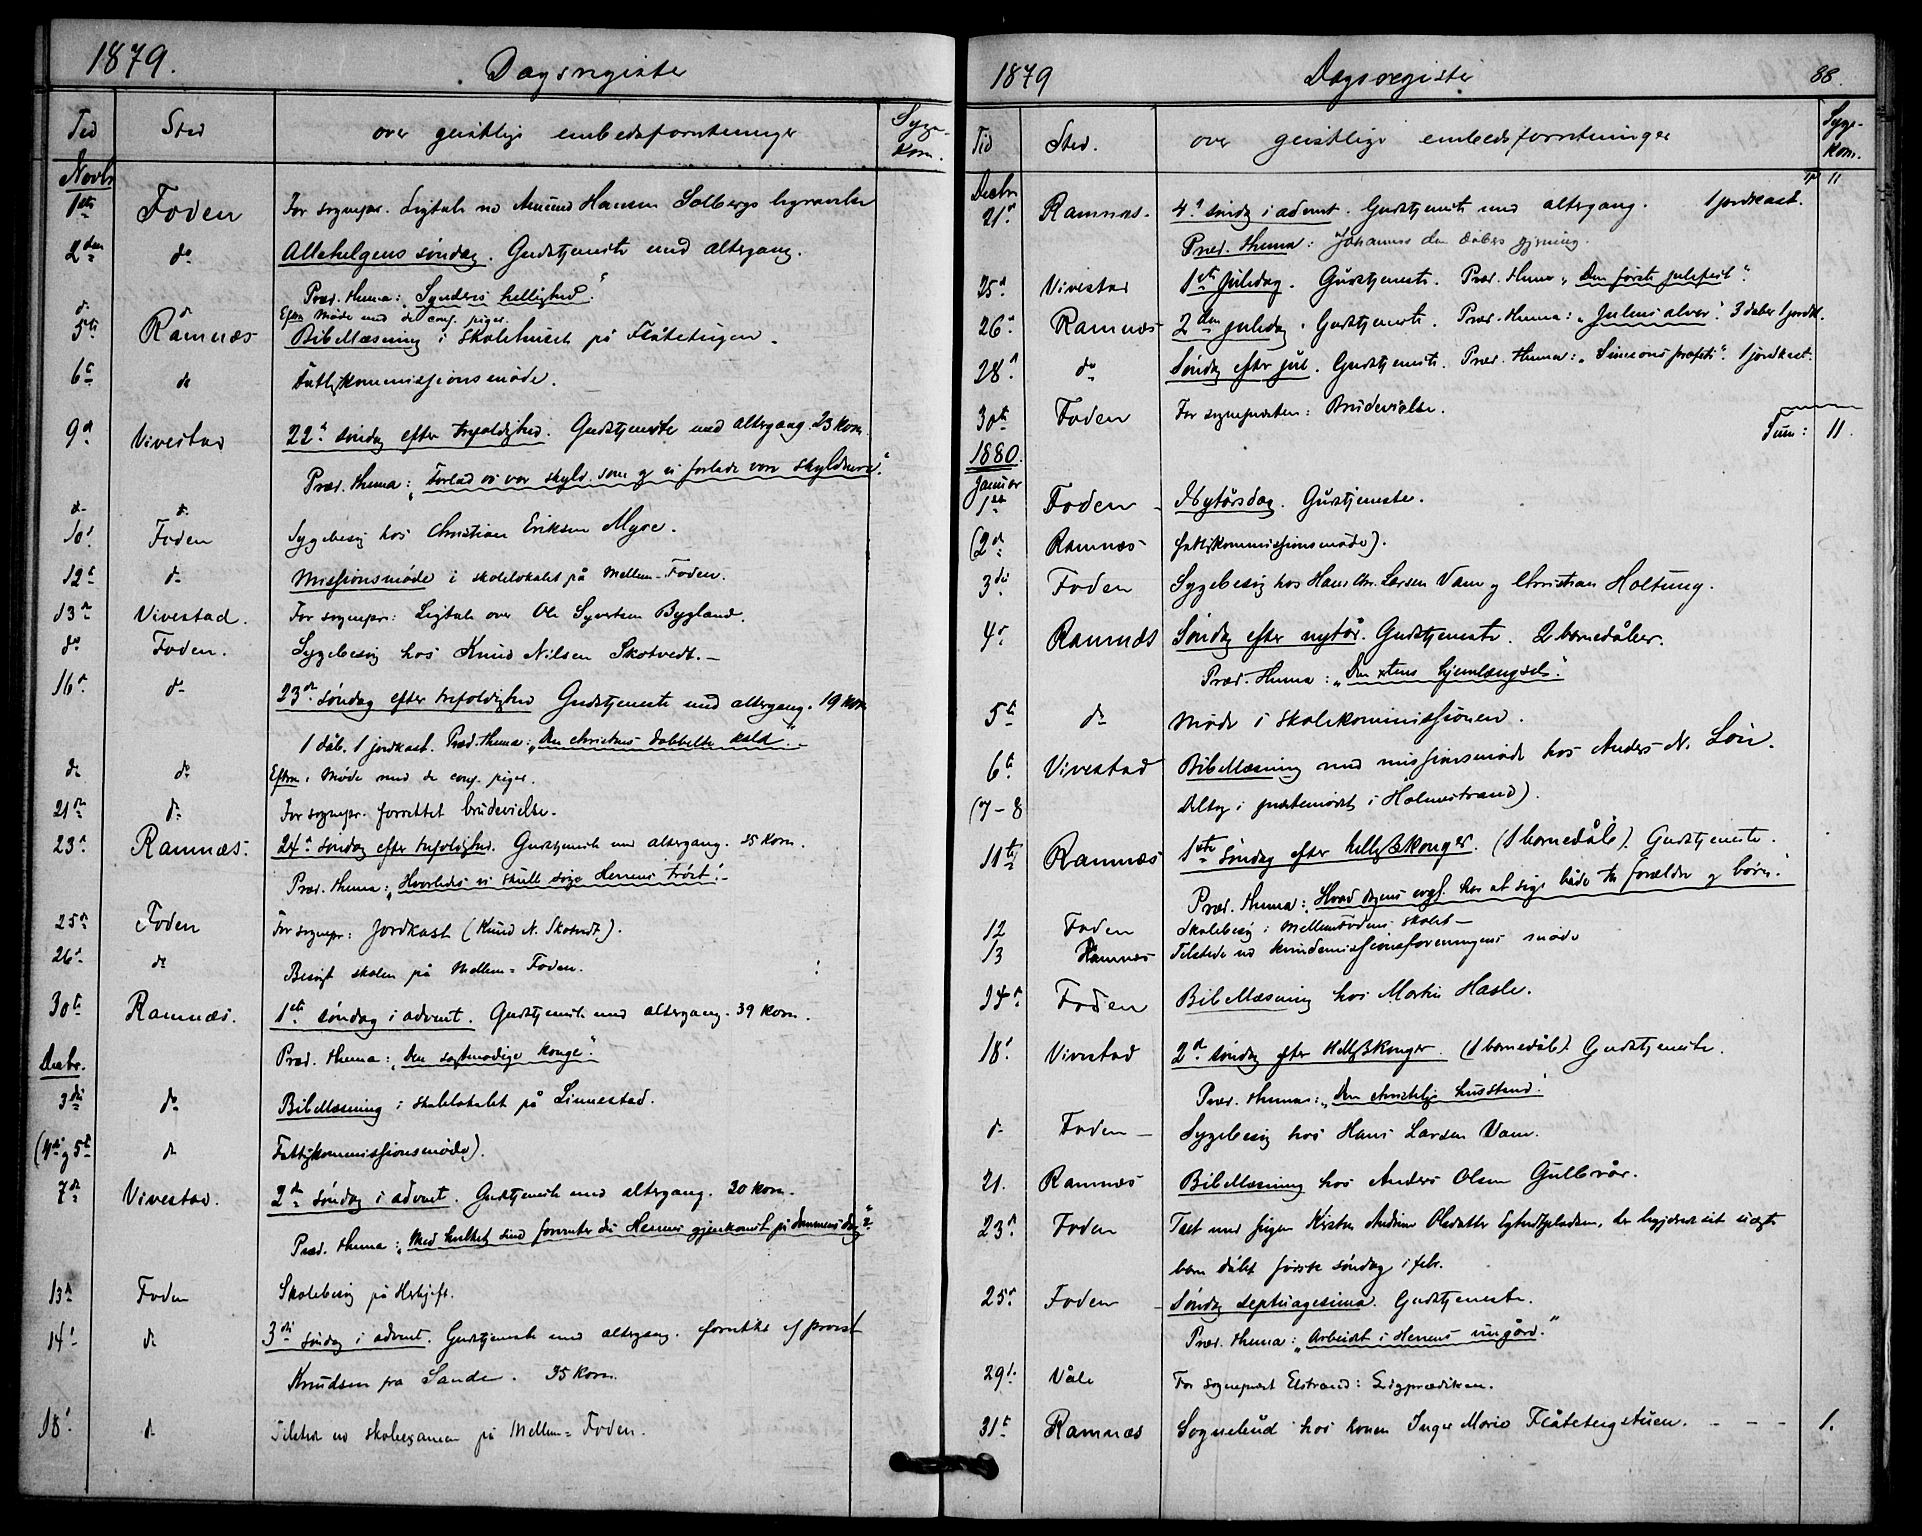 1879.
Dagsregister
Tid
Sted
over geistlige embedsforretninger
Syge-
kom.
Novbr
1ste Foden For sognepr. Ligtale ved Amund Hansen Solbergs begravelse
2den do Allehelgens søndag. Gudstjeneste med altergang.
Præd. thema: "Synderes hellighed".
do do Efterm. Møde med de conf. piger.
5te Ramnæs Bibellæsning i skolehuset på Flåtetegen.
6te do Fattigkommissionsmøde.
9d Vivestad 22d søndag efter trefoldighed. Gudstjeneste med altergang. 23 kom.
Præd. thema: "Forlad os vor skyld, som og vi forlade vore skyldnere".
do do
10d Foden Sygebesøg hos Christian Eriksen Myre.
12t do Missionsmøde i skolelokalet på Mellem-Foden.
13de Vivestad. For sognepr: Ligtale over Ole Syvertsen Bygland.
do Foden. Sygebesøg hos Knud Nilsen Skotvedt. -
16d do 23de søndag efter trefoldighed Gudstjeneste med altergang. 19 kom
1 dåb. 1 jordkast. Præd. thema: "Den christnes dobbelte kald". -
do do Efterm: Møde med de conf. piger.
21de do For sognepr. forrettet brudevielse.
23d Ramnæs. 24d søndag efter trefoldighed. Gudstjeneste med altergang. 35 kom.
Præd. thema: "Hvorledes vi skulle søge Herrens trøst". -
25d Foden For sognepr: Jordkast (Knud N. Skotvedt).
26d do Besøgt skolen på Mellem-Foden.
30te Ramnæs. 1ste søndag i advent. Gudstjeneste med altergang. 39 kom.
Præd. thema: "Den sagtmodige konge".
Decbr.
3die do Bibellæsning i skolelokalet på Linnestad.
(4de og 5te do Fattigkommissionsmøde).
7de Vivestad. 2de søndag i advent. Gudstjeneste med altergang. 20 kom.
Præd. thema: "Med hvilket sind forventer du Herrens gjenkomst på dommens dag"?
13de Foden Skolebesøg på
14d do 3die søndag i advent. Gudstjeneste med altergang. forrettet af provst
Knudsen fra Sande. 35 kom.
18d do Tilstede ved skoleexamen på Mellem-Foden.
1879
Dagsregister
88.
Tid
Sted.
over geistlige embedsforretninger
Syge-
kom.
Decbr Tr. 11
21d Ramnæs. 4d søndag i advent. Gudstjeneste med altergang. 1 jordkast.
Præd. thema: Johannes den døbers gjerning.
25d Vivestad 1ste juledag. Gudstjeneste. Præd. thema: "Den første julefest".
26d Ramnæs 2den juledag. Gudstjeneste. Præd. thema: "Julens alvor". 3 dåber 1 jordk.
28d do Søndag efter jul. Gudstjeneste. Præd. thema: "Simeons profeti". 1 jordkast.
30te Foden For sognepresten: Brudevielse.
Sum: 11.
1880.
Januar
1ste Foden - Nytårsdag. Gudstjeneste.
(2d Ramnæs Fattigkommissionsmøde).
3die Foden Sygebesøg hos Hans Chr. Larsen Vam og Christian Holtung.
4d Ramnæs Søndag efter nytår. Gudstjeneste. 2 barnedåber.
Præd. thema: "Den xtens hjemlængsel".
5te do Møde i skolekommissionen.
6te Vivestad Bibellæsning med missionsmøde hos Anders N. Løu.
(7-8 Deltog i præstemødet i Holmestrand).
11te Ramnæs 1ste søndag efter hellig3konger. (1 barnedåb). Gudstjeneste.
Præd. thema: "Hvad dagens evgl. har at sige både til forældre og børn".
12 Foden Skolebesøg i Mellemfodens skolel-
13 Ramnæs Tilstede ved kvindemissionsforeningens møde
14d Foden Bibellæsning hos Martin Hasle.
18d Vivestad 2d søndag efter Hellig3konger. (1 barnedåb). Gudstjeneste.
Præd. thema: "Den christelige husstand".
do Foden - Sygebesøg hos Hans Larsen Vam.
21. Ramnæs Bibellæsning hos Anders Olsen Gullesvår.
23d Foden Talt med pigen Kirsten Andrine Olsdatter der begjerer sit uægte
barn døbt første søndag i febr.
25d Foden - Søndag septuagesima. Gudstjeneste.
Præd. thema: "Arbeidet i Herrens vingård."
29d Våle For sogneprest Elstrand: Ligprædiken.
31te Ramnæs Sognebud hos konen Inger Marie Flåtetegstuen. - - - 1.